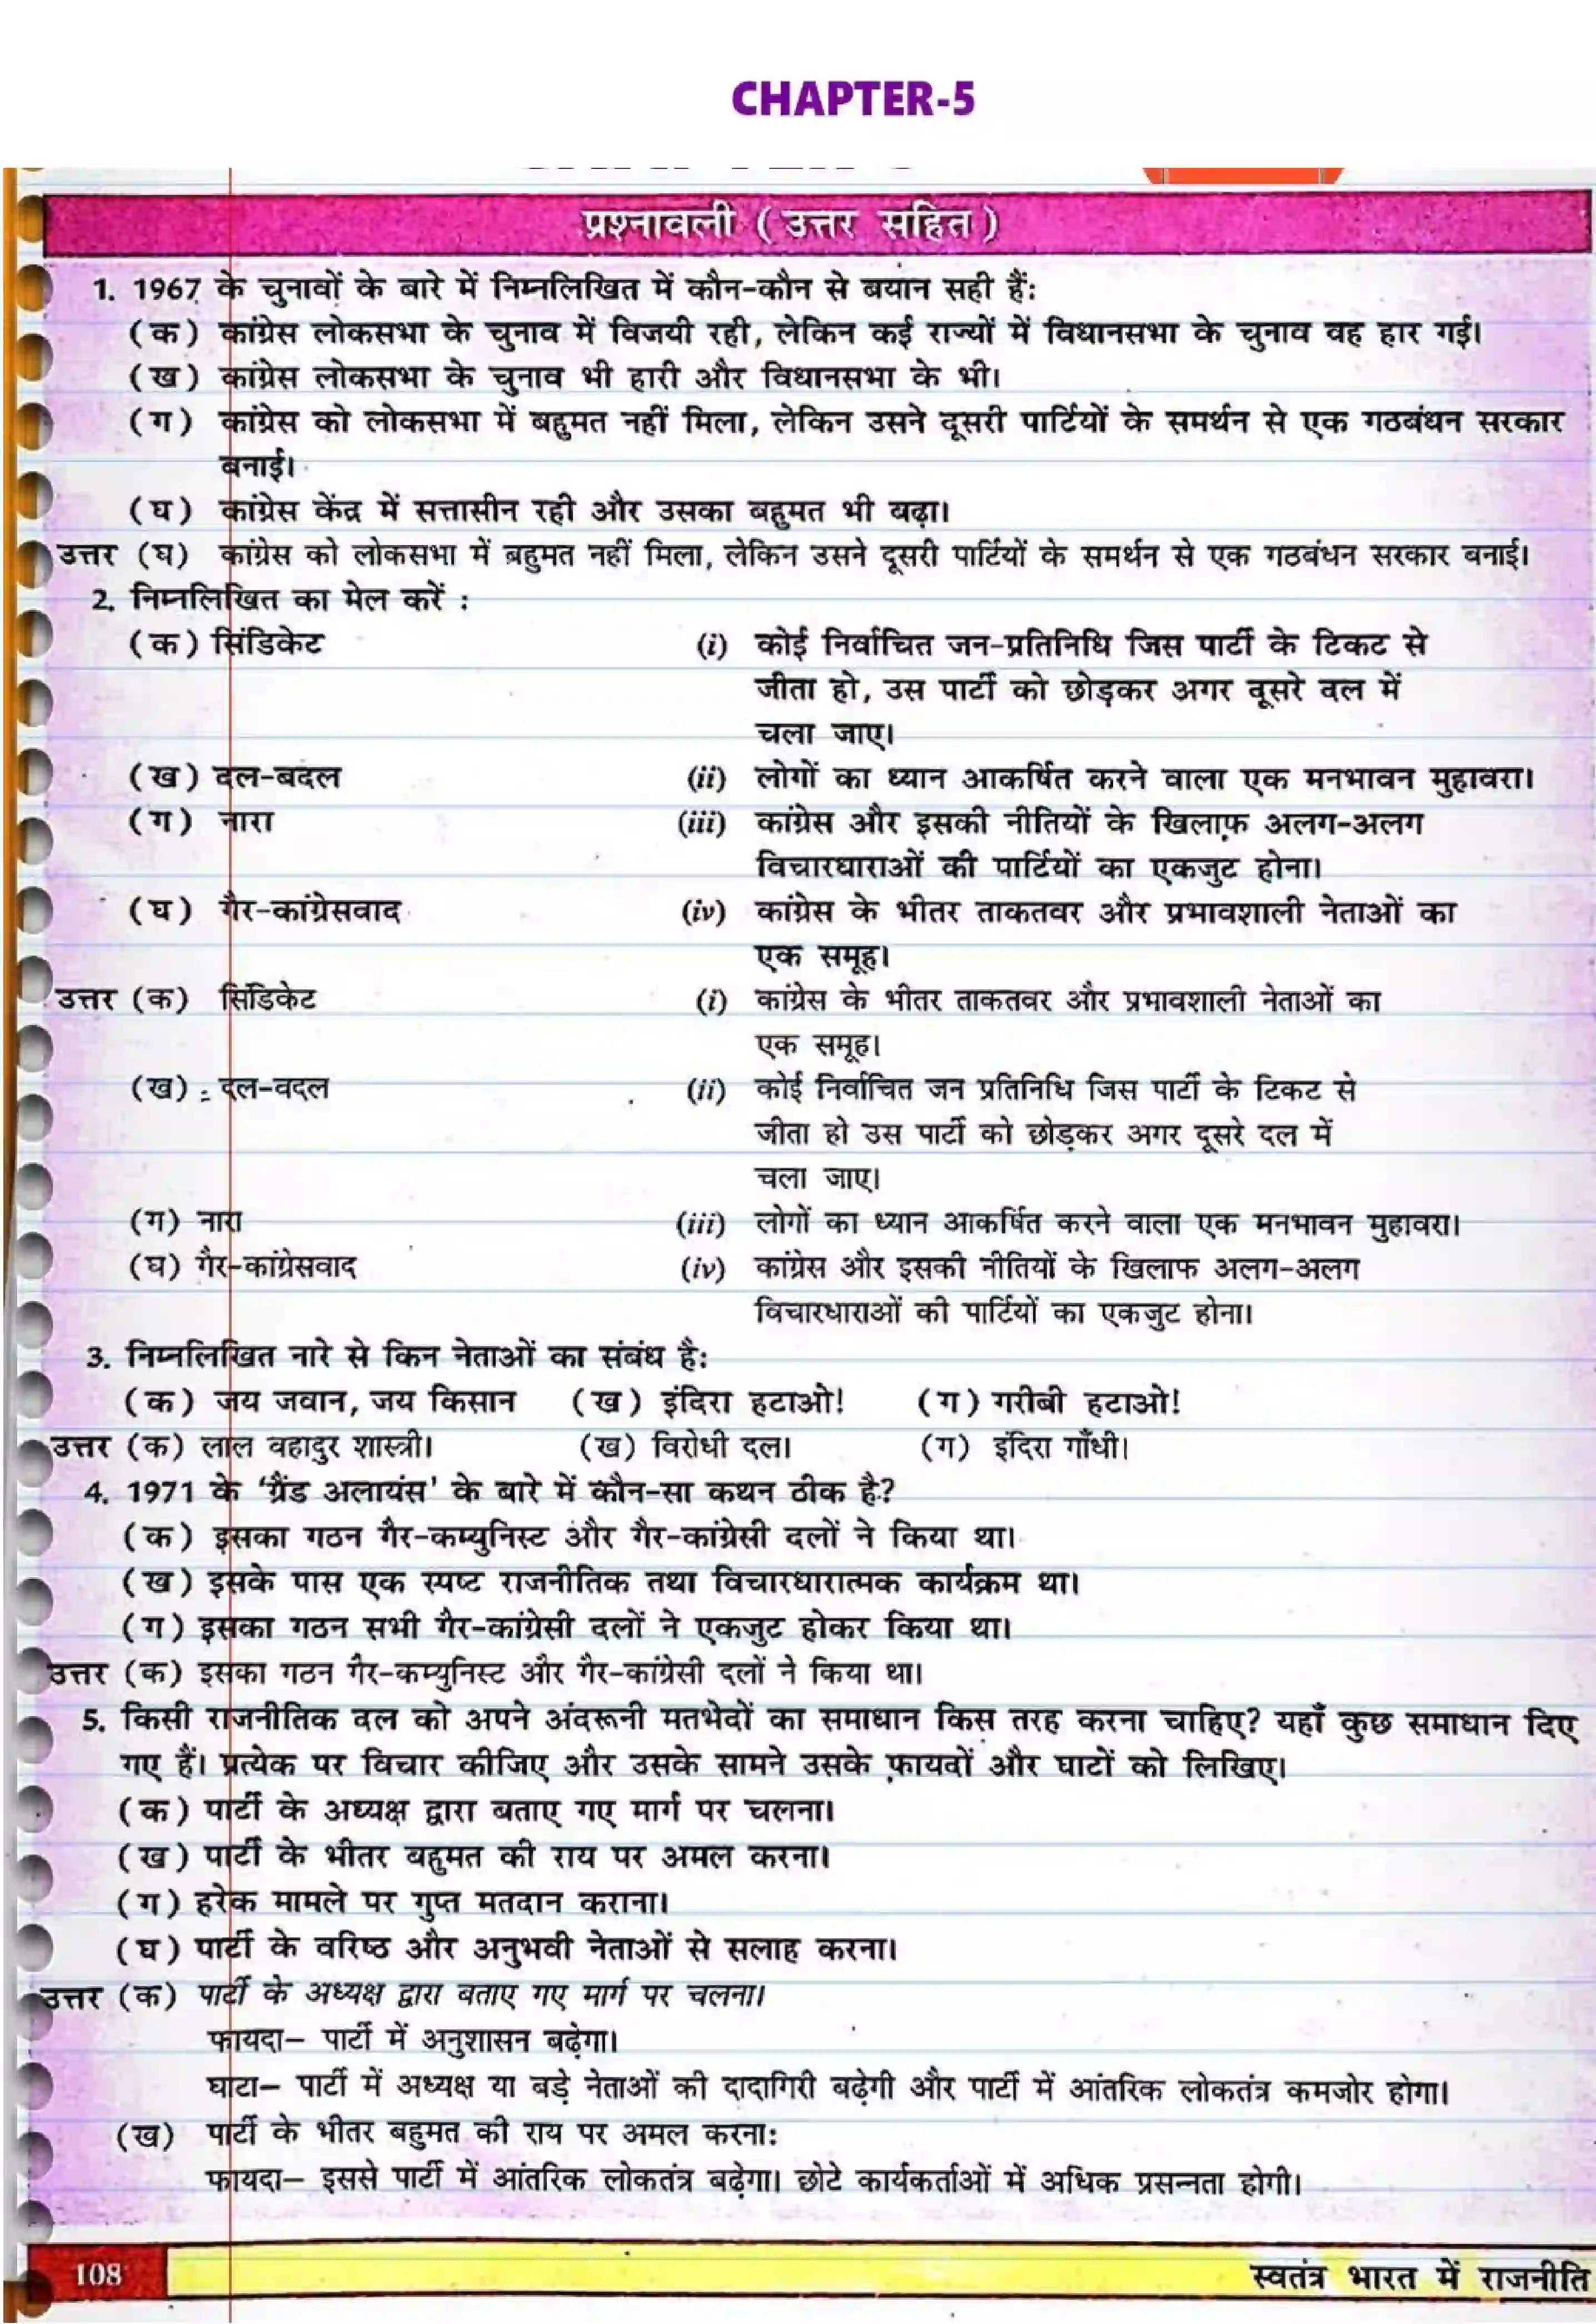 CHAPTER-5
प्रश्नावली ( उत्तर सहित )
1. 1967 के चुनावों के बारे में निम्नलिखित में कौन-कौन से बयान सही हैं:
(क) कांग्रेस लोकसभा के चुनाव में विजयी रही, लेकिन कई राज्यों में विधानसभा के चुनाव वह हार गई।
(ख) कांग्रेस लोकसभा के चुनाव भी हारी और विधानसभा के भी।
(ग) कांग्रेस को लोकसभा में बहुमत नहीं मिला, लेकिन उसने दूसरी पार्टियों के समर्थन से एक गठबंधन सरकार
बनाई।
(घ) कांग्रेस केंद्र में सत्तासीन रही और उसका बहुमत भी बढ़ा।
उत्तर (घ) कांग्रेस को लोकसभा में बहुमत नहीं मिला, लेकिन उसने दूसरी पार्टियों के समर्थन से एक गठबंधन सरकार बनाई।
2. निम्नलिखित का मेल करें :
(क) सिंडिकेट (i) कोई निर्वाचित जन-प्रतिनिधि जिस पार्टी के टिकट से
जीता हो, उस पार्टी को छोड़कर अगर दूसरे दल में
चला जाए।
(ख) दल-बदल (ii) लोगों का ध्यान आकर्षित करने वाला एक मनभावन मुहावरा।
(ग) नारा (iii) कांग्रेस और इसकी नीतियों के खिलाफ़ अलग-अलग
विचारधाराओं की पार्टियों का एकजुट होना।
(घ) गैर-कांग्रेसवाद (iv) कांग्रेस के भीतर ताकतवर और प्रभावशाली नेताओं का
एक समूह।
उत्तर (क) सिंडिकेट (i) कांग्रेस के भीतर ताकतवर और प्रभावशाली नेताओं का
एक समूह।
(ख) दल-वदल (ii) कोई निर्वाचित जन प्रतिनिधि जिस पार्टी के टिकट से
जीता हो उस पार्टी को छोड़कर अगर दूसरे दल में
चला जाए।
(ग) नारा (iii) लोगों का ध्यान आकर्षित करने वाला एक मनभावन मुहावरा।
(घ) गैर-कांग्रेसवाद (iv) कांग्रेस और इसकी नीतियों के खिलाफ अलग-अलग
विचारधाराओं की पार्टियों का एकजुट होना।
3. निम्नलिखित नारे से किन नेताओं का संबंध है:
(क) जय जवान, जय किसान (ख) इंदिरा हटाओ! (ग) गरीबी हटाओ!
उत्तर (क) लाल वहादुर शास्त्री। (ख) विरोधी दल। (ग) इंदिरा गाँधी।
4. 1971 के 'ग्रैंड अलायंस' के बारे में कौन-सा कथन ठीक है?
(क) इसका गठन गैर-कम्युनिस्ट और गैर-कांग्रेसी दलों ने किया था।
(ख) इसके पास एक स्पष्ट राजनीतिक तथा विचारधारात्मक कार्यक्रम था।
(ग) इसका गठन सभी गैर-कांग्रेसी दलों ने एकजुट होकर किया था।
उत्तर (क) इसका गठन गैर-कम्युनिस्ट और गैर-कांग्रेसी दलों ने किया था।
5. किसी राजनीतिक दल को अपने अंदरूनी मतभेदों का समाधान किस तरह करना चाहिए? यहाँ कुछ समाधान दिए
गए हैं। प्रत्येक पर विचार कीजिए और उसके सामने उसके फ़ायदों और घाटों को लिखिए।
(क) पार्टी के अध्यक्ष द्वारा बताए गए मार्ग पर चलना।
(ख) पार्टी के भीतर बहुमत की राय पर अमल करना।
(ग) हरेक मामले पर गुप्त मतदान कराना।
(घ) पार्टी के वरिष्ठ और अनुभवी नेताओं से सलाह करना।
उत्तर (क) पार्टी के अध्यक्ष द्वारा बताए गए मार्ग पर चलना।
फायदा– पार्टी में अनुशासन बढ़ेगा।
घाटा– पार्टी में अध्यक्ष या बड़े नेताओं की दादागिरी बढ़ेगी और पार्टी में आंतरिक लोकतंत्र कमजोर होगा।
(ख) पार्टी के भीतर बहुमत की राय पर अमल करना:
फायदा– इससे पार्टी में आंतरिक लोकतंत्र बढ़ेगा। छोटे कार्यकर्ताओं में अधिक प्रसन्नता होगी।
108 स्वतंत्र भारत में राजनीति